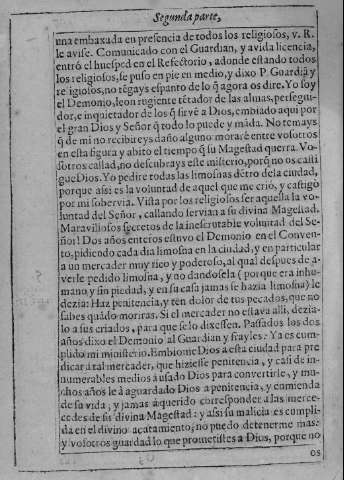 Segunda parte,
una embaxada en presencia de todos los religiosos, v. R.
le avise. Comunicado con el Guardian, y avida licencia,
entrò el huesped en el Refectorio, adonde estando todos
los religiosos, se puso en pie en medio, y dixo P. Guardiã y
religiosos, no tẽgays espanto de lo q̃ agora os dire. Yo soy
el Demonio, leon rugiente tẽtador de las almas, persegui-
dor, e inquietador de los q̃ sirvẽ a Dios, embiado aqui por
el gran Dios y Señor q̃ todo lo puede y mãda. No temays
q̃ de mi no recibireys daño alguno morarè entre vosotros
en esta figura y abito el tiempo q̃ su Magestad querra. Vo-
sotros callad, no descubrays este misterio, porq̃ no os casti
gue Dios. Yo pedirè todas las limosnas dẽtro dela ciudad,
porque assi es la voluntad de aquel que me criò, y castigò
por mi sobervia. Vista por los religiosos ser aquella la vo-
luntad del Señor, callando servian a su divina Magestad.
Maravillosos secretos de la inescrutable voluntad del Se-
ñor! Dos años enteros estuvo el Demonio en el Conven-
to, pidiendo cada dia limosna en la ciudad, y en particular
a un mercader muy rico y poderoso, al qual despues de a-
verle pedido limosna, y no dandosela (porque era inhu-
mano y sin piedad, y en su casa jamas se hazia limosna) le
dezia: Haz penitencia, y ten dolor de tus pecados, que no
sabes quãdo moriras. Si el mercader no estava alli, dezia-
lo a sus criados, para que se lo dixessen. Passados los dos
años dixo el Demonio al Guardian y frayles: Ya es cum-
plido mi ministerio. Embiome Dios a esta ciudad para pre
dicar a tal mercader, que hiziesse penitencia, y casi de in-
numerables medios à usado Dios para convertirle, y mu-
chos años le à aguardado Dios a penitencia, y enmienda
de su vida; y jamas à querido corresponder a las merce-
cedes de su divina Magestad: y assi su malicia es cumpli-
da en el divino acatamiento; no puedo detenerme mas:
y vosotros guardad lo que prometistes a Dios, porque no
os